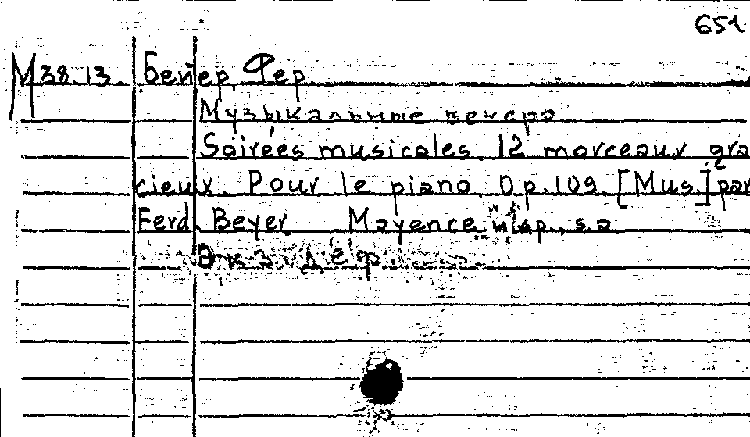 651
М38.13. Бейер, Фер.
Музыкальные вечера
Soirées musicales. 12 morceaux gra
cieux. Pour le piano. Op. 109. [Mus.] par
Ferd. Beyer Mayence, s.a.
Экз. деф.